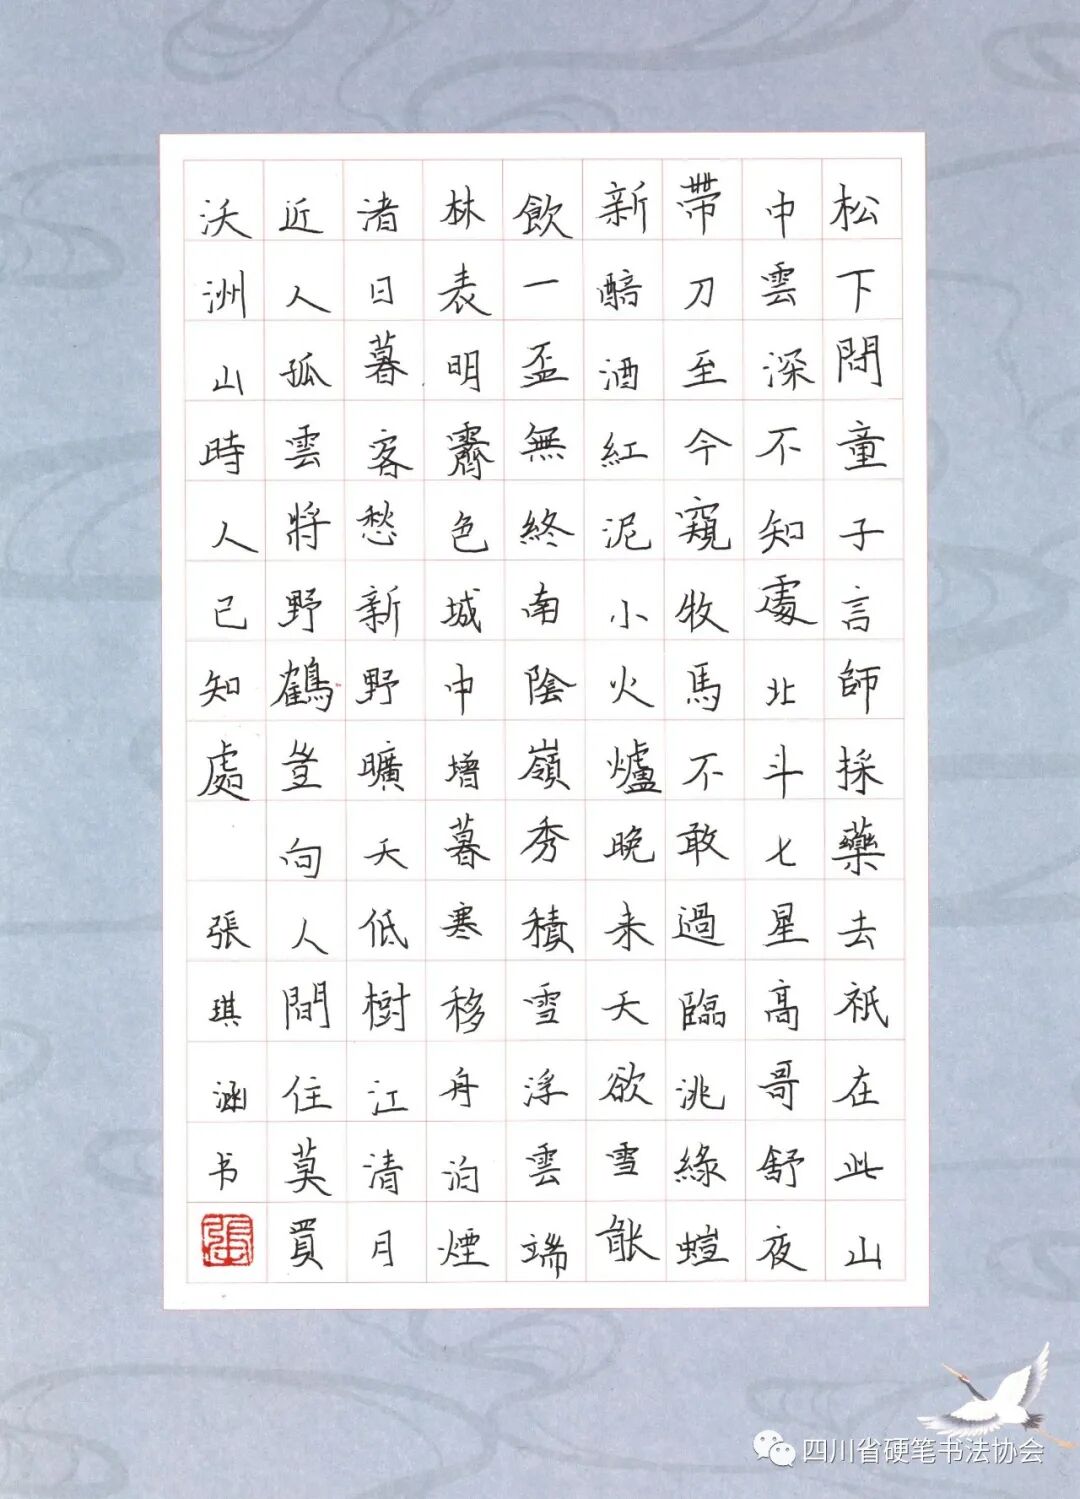 松下問童子言師採藥去祇在此山
中雲深不知處北斗七星高哥舒夜
帶刀至今窺牧馬不敢過臨洮緣螘
新醅酒紅泥小火爐晚来天欲雪能
飲一盃無終南陰嶺秀積雪浮雲端
林表明霽色城中增暮寒移舟泊煙
渚日暮客愁新野曠天低樹江清月
近人孤雲將野鶴豈向人間住莫買
沃洲山時人已知處 張琪涵书
四川省硬笔书法协会